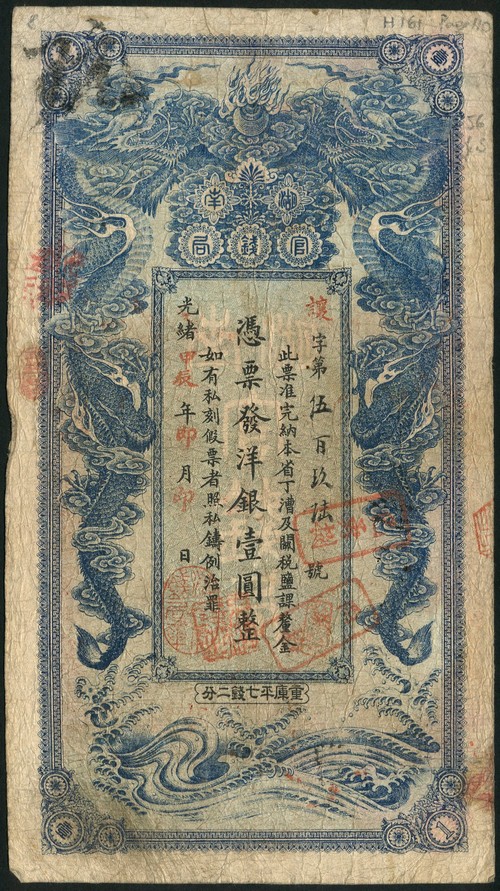 H161 Page 110
湖南
官錢局
讓字第伍百玖陆號
此票准完納本省丁漕及關税鹽課釐金
憑票發洋銀壹圓整
如有私刻假票者照私鑄例治罪
光緒甲辰年印月印日
重庫平七錢二分
1